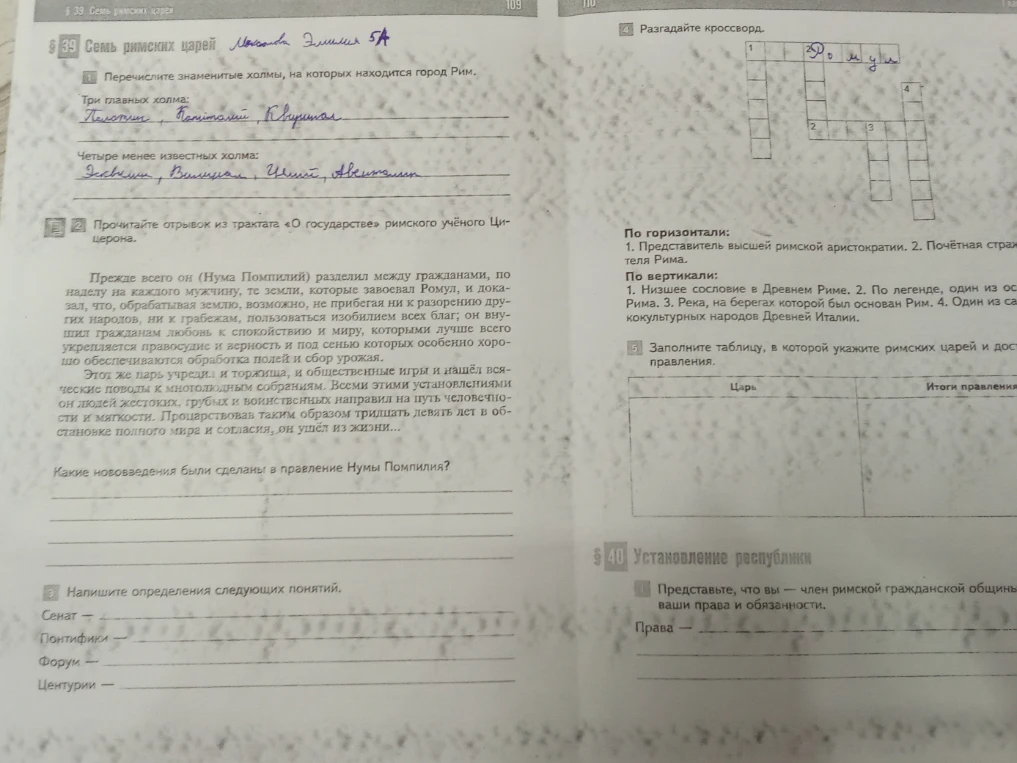 § 39. Семь римских царей
109
§ 39 Семь римских царей Эмилия 5А
1 Перечислите знаменитые холмы, на которых находится город Рим.
Три главных холма:
Палатин, Капитолий, Квиринал
Четыре менее известных холма:
Эсквилин, Виминал, Целий, Авентин
2 Прочитайте отрывок из трактата «О государстве» римского учёного Ци-
церона.
Прежде всего он (Нума Помпилий) разделил между гражданами, по
наделу на каждого мужчину, те земли, которые завоевал Ромул, и дока-
зал, что, обрабатывая землю, возможно, не прибегая ни к разорению дру-
гих народов, ни к грабежам, пользоваться изобилием всех благ; он вну-
шил гражданам любовь к спокойствию и миру, которыми лучше всего
укрепляется правосудие и верность и под сенью которых особенно хоро-
шо обеспечиваются обработка полей и сбор урожая.
Этот же царь учредил и торжища, и общественные игры и нашёл вся-
ческие поводы к многолюдным собраниям. Всеми этими установлениями
он людей жестоких, грубых и воинственных направил на путь человечно-
сти и мягкости. Процарствовав таким образом тридцать девять лет в об-
становке полного мира и согласия, он ушёл из жизни...
Какие нововведения были сделаны в правление Нумы Помпилия?
3 Напишите определения следующих понятий.
Сенат —
Понтифики —
Форум —
Центурии —
110
4 Разгадайте кроссворд.
1 2 Ромул
4
2 3
По горизонтали:
1. Представитель высшей римской аристократии. 2. Почётная страж
теля Рима.
По вертикали:
1. Низшее сословие в Древнем Риме. 2. По легенде, один из ос
Рима. 3. Река, на берегах которой был основан Рим. 4. Один из са
кокультурных народов Древней Италии.
5 Заполните таблицу, в которой укажите римских царей и дос
правления.
Царь Итоги правления
§ 40 Установление республики
1 Представьте, что вы — член римской гражданской общины
ваши права и обязанности.
Права —